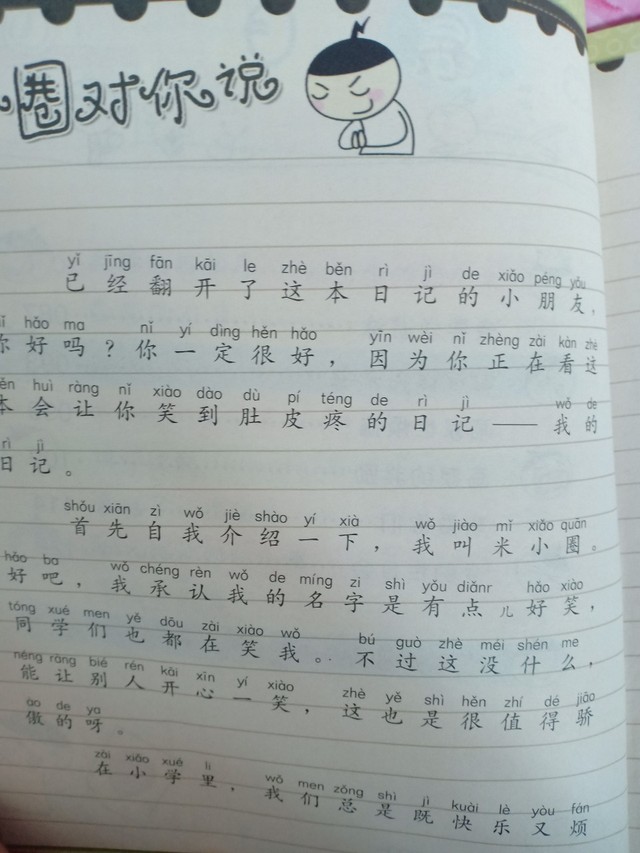 圈对你说
yǐ jīng fān kāi le zhè běn rì jì de xiǎo péng yǒu
已经翻开了这本日记的小朋友，
hǎo ma nǐ yí dìng hěn hǎo yīn wèi nǐ zhèng zài kàn zhè
你好吗？你一定很好，因为你正在看这
huì ràng nǐ xiào dào dù pí téng de rì jì wǒ de
本会让你笑到肚皮疼的日记——我的
rì jì
日记。
shǒu xiān zì wǒ jiè shào yí xià wǒ jiào mǐ xiǎo quān
首先自我介绍一下，我叫米小圈。
hǎo ba wǒ chéng rèn wǒ de míng zi shì yǒu diǎnr hǎo xiào
好吧，我承认我的名字是有点儿好笑，
tóng xué men yě dōu zài xiào wǒ bú guò zhè méi shén me
同学们也都在笑我。不过这没什么，
néng ràng bié rén kāi xīn yí xiào zhè yě shì hěn zhí dé jiāo
能让别人开心一笑，这也是很值得骄
ào de ya
傲的呀。
zài xiǎo xué li wǒ men zǒng shì jì kuài lè yòu fán
在小学里，我们总是既快乐又烦